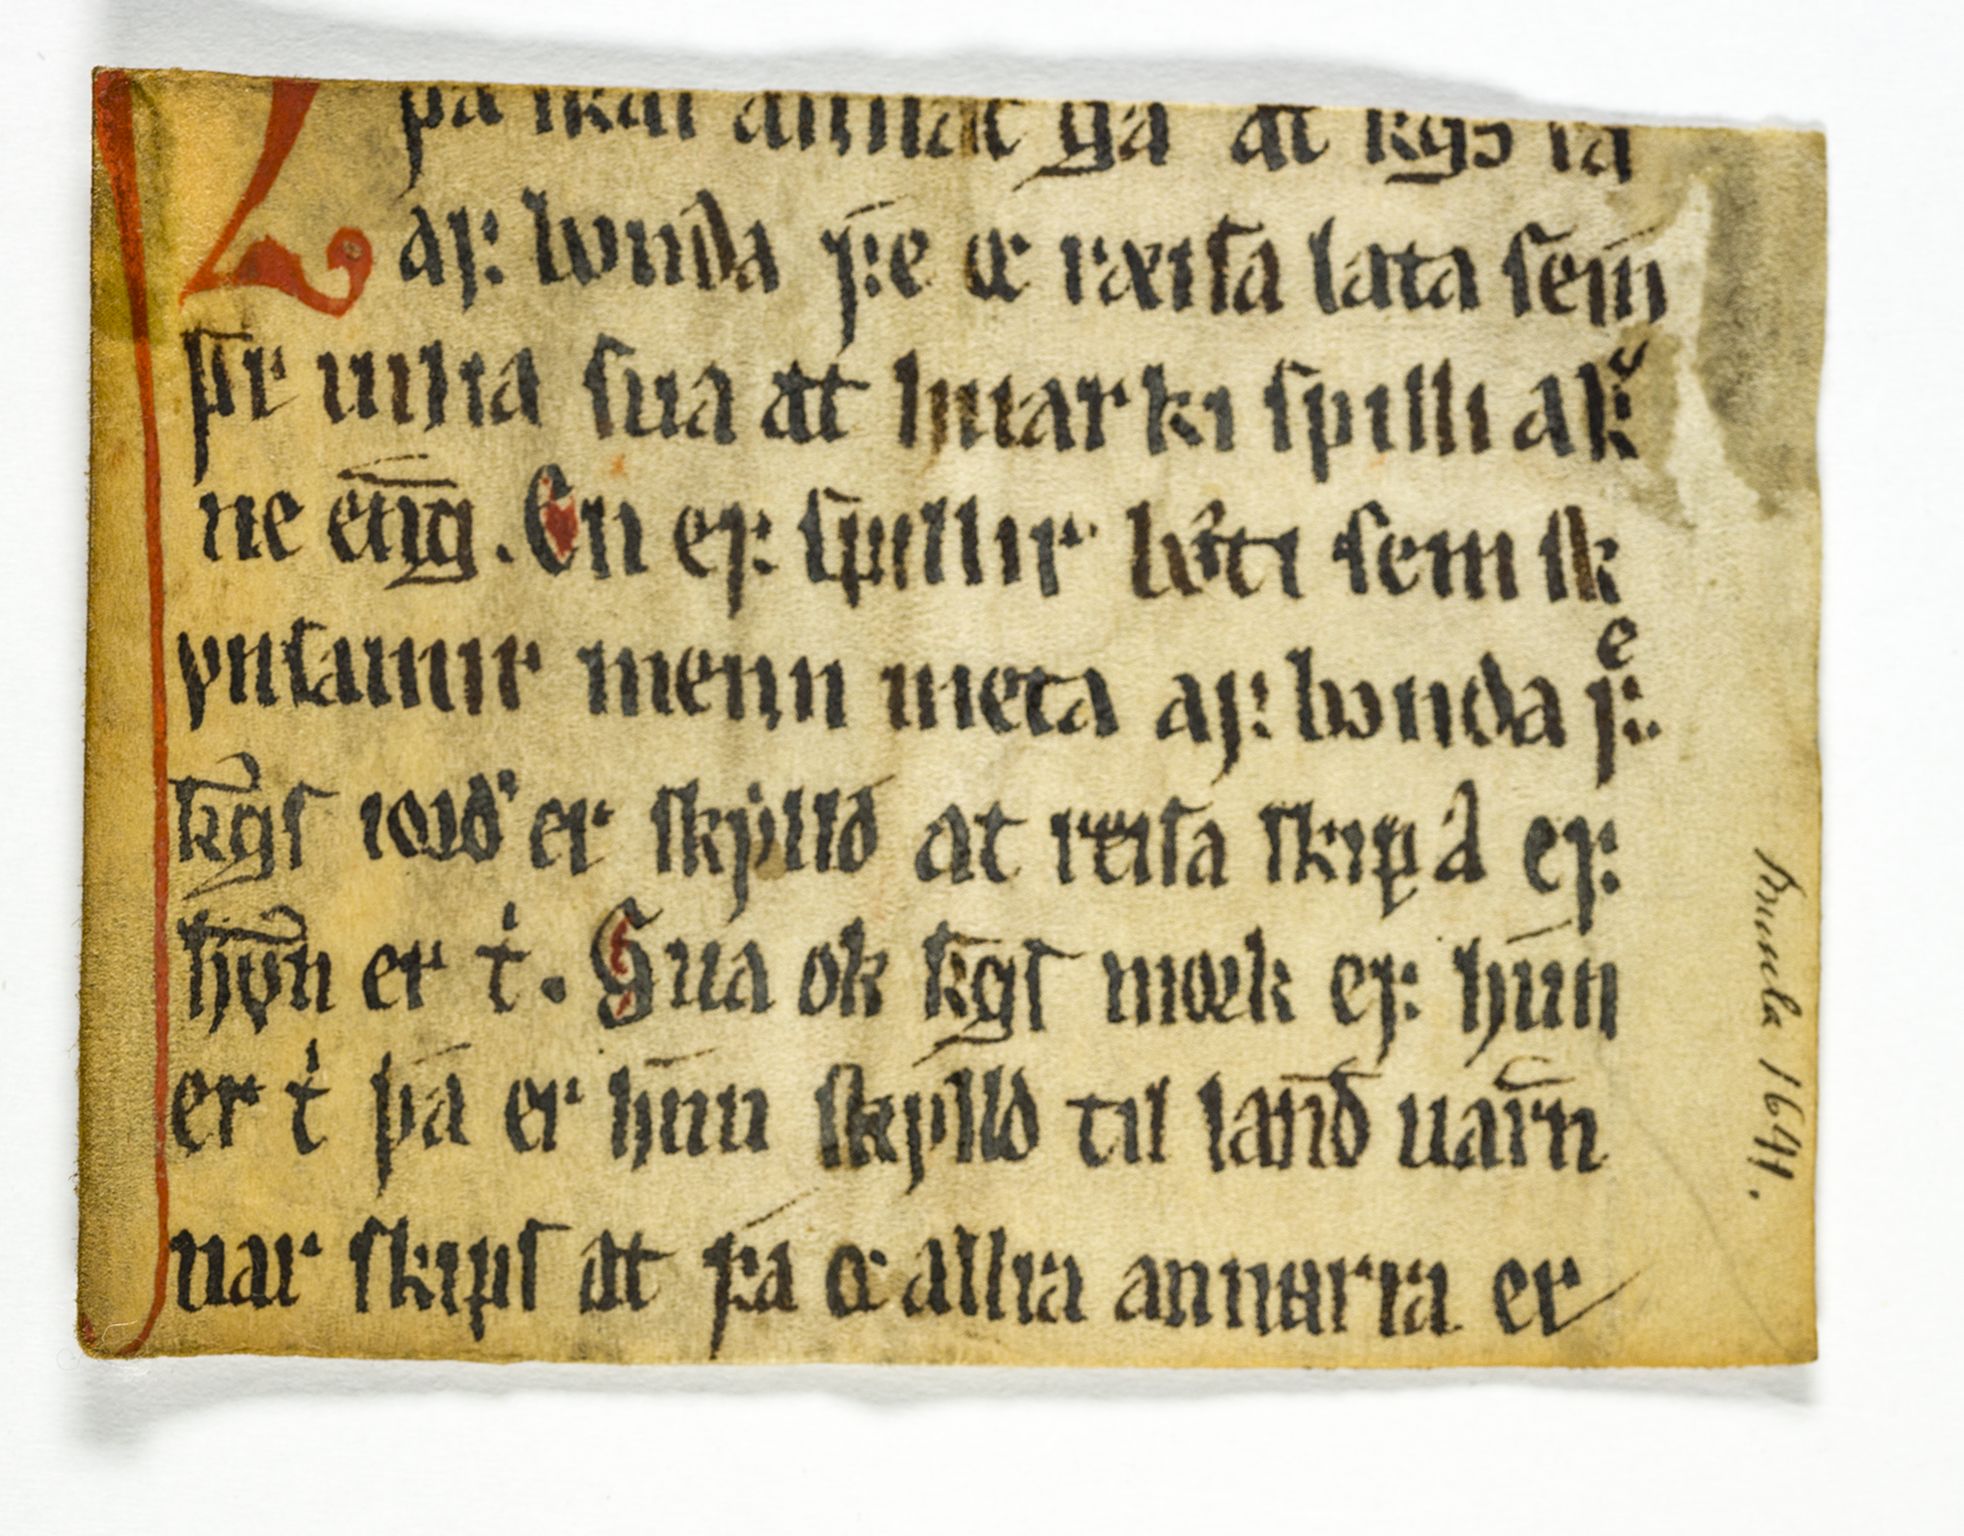 þa skal annat ga at kgs ra
aꝼ bonda ꝼe ꝫ ræisa lata sem̅
þr̅ uilia sua at huarki spilli akͬ
ne e̅ng̅. En eꝼ spillir bꝍti sem sk
ynsamir menn meta aꝼ bonda ꝼᷤe
kg̅s iorð er skylld at ræisa skip a eꝼ
ho̅n er tͥ. Sua ok kg̅s mork eꝼ hu̅n
er tͥ þa er hu̅n skylld til land uar̅n
nar skips at ꝼa ꝫ allra annarra er
Smula 1641.